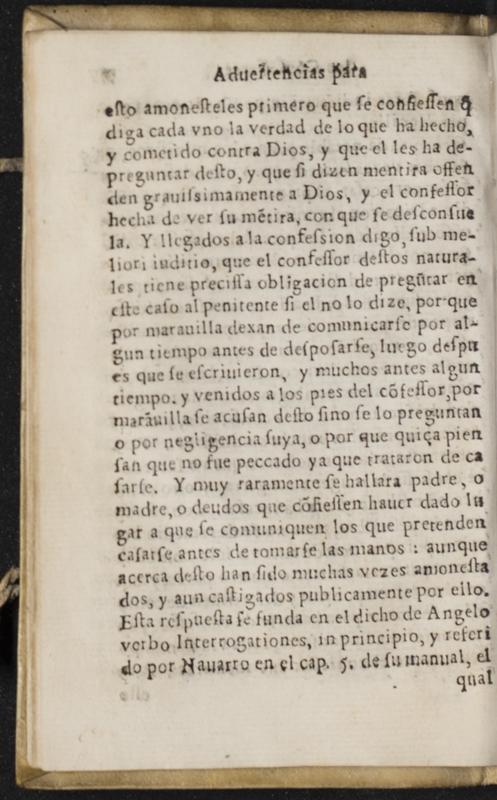 Aduertencias para
esto amonesteles primero que se confiessen q̃
diga cada vno la verdad de lo que ha hecho,
y cometido contra Dios, y que el les ha de-
preguntar desto, y que si dizen mentira offen
den grauissimamente a Dios, y el confessor
hecha de ver su mẽtira, con que se desconsue
la. Y llegados a la confession digo, sub me-
liori iuditio, que el confessor destos natura-
les tiene precissa obligacion de pregũtar en
este caso al penitente si el no lo dize, por que
por marauilla dexan de comunicarse por al-
gun tiempo antes de desposarse, luego despu
es que se escriuieron, y muchos antes algun
tiempo. y venidos a los pies del cõfessor, por
marauilla se acusan desto sino se lo preguntan
o por negligencia suya, o por que quiça pien
san que no fue peccado ya que trataron de ca
sarse. Y muy raramente se hallara padre, o
madre, o deudos que cõfiessen hauer dado lu
gar a que se comuniquen los que pretenden
casarse antes de tomarse las manos : aunque
acerca desto han sido muchas vezes amonesta
dos, y aun castigados publicamente por ello.
Esta respuesta se funda en el dicho de Angelo
verbo Interrogationes, in principio, y referi
do por Nauarro en el cap. 5. de su manual, el
qual